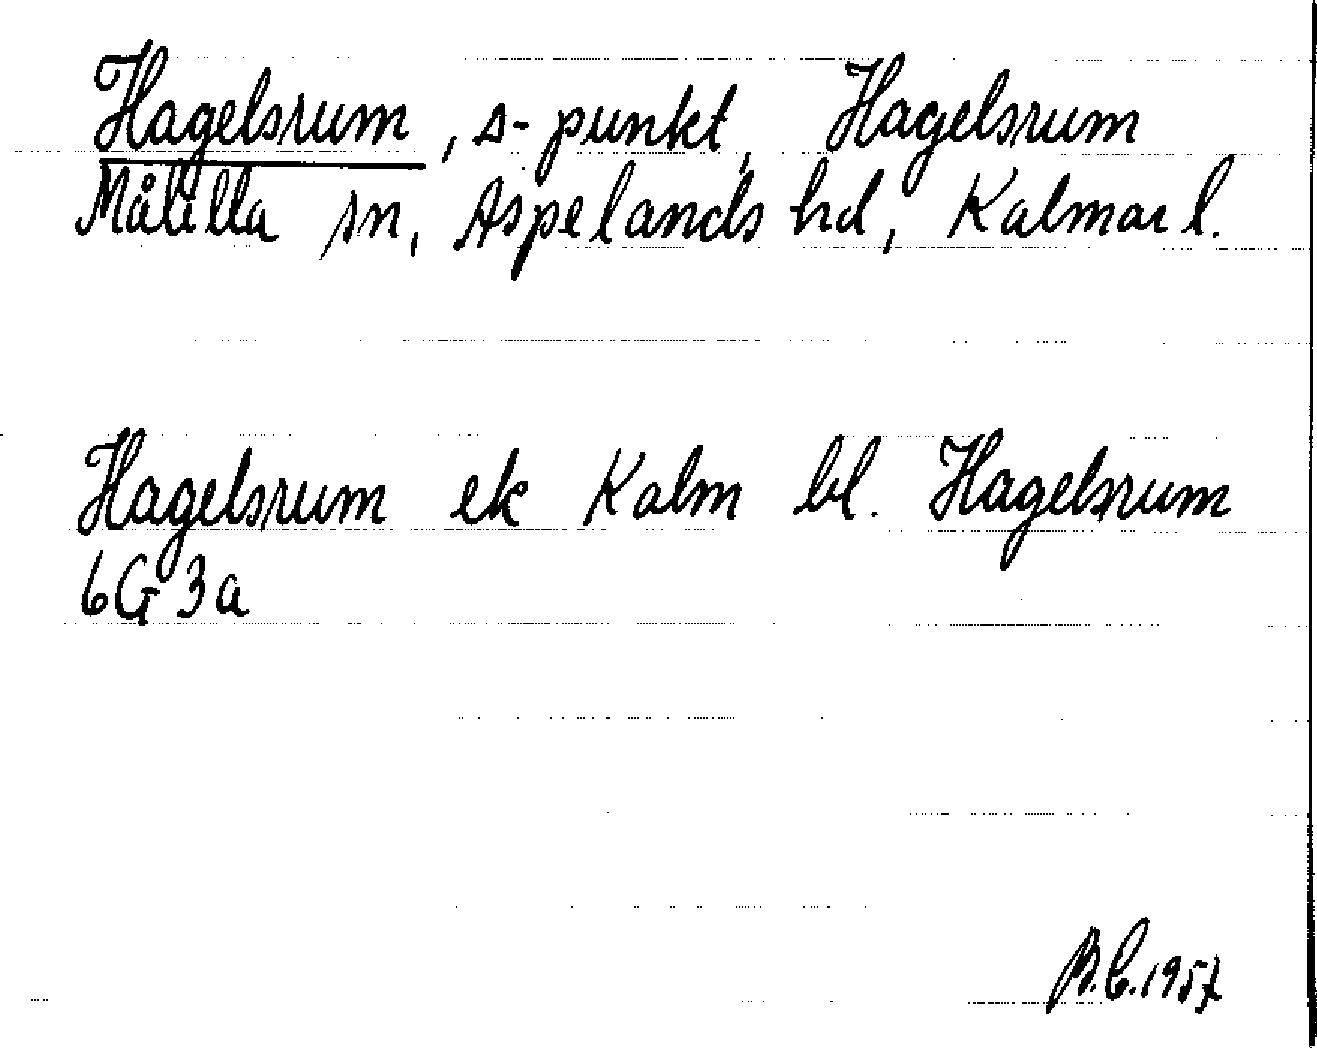 Hagelsrum, s-punkt, Hagelsrum
Målilla sn, Aspelands hd, Kalmar l.
Hagelsrum ek Kalm bl. Hagelsrum
6G 3a
B.C. 1957